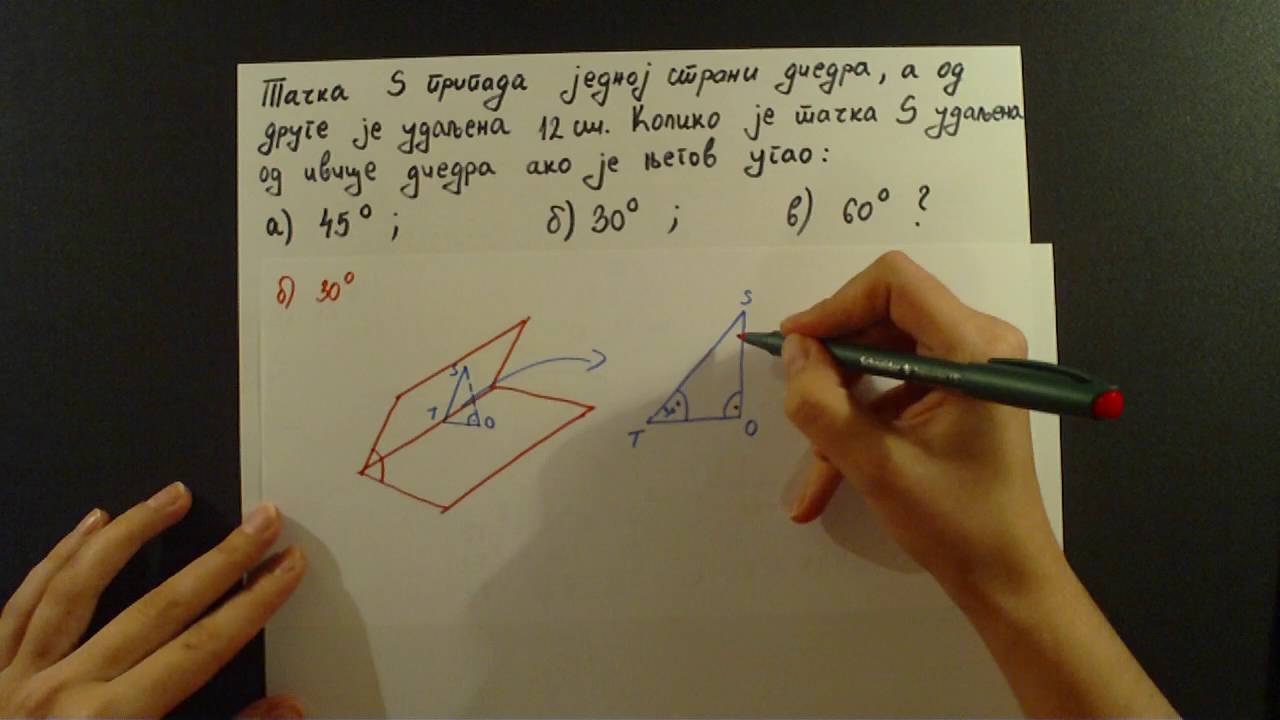 Тачка S припада једној страни диедра, а од
друге је удаљена 12 cm. Колико је тачка S удаљена
од ивице диедра ако је његов угао:
а) 45° ; б) 30° ; в) 60° ?
б) 30°
S
T
O
S
30°
T
O